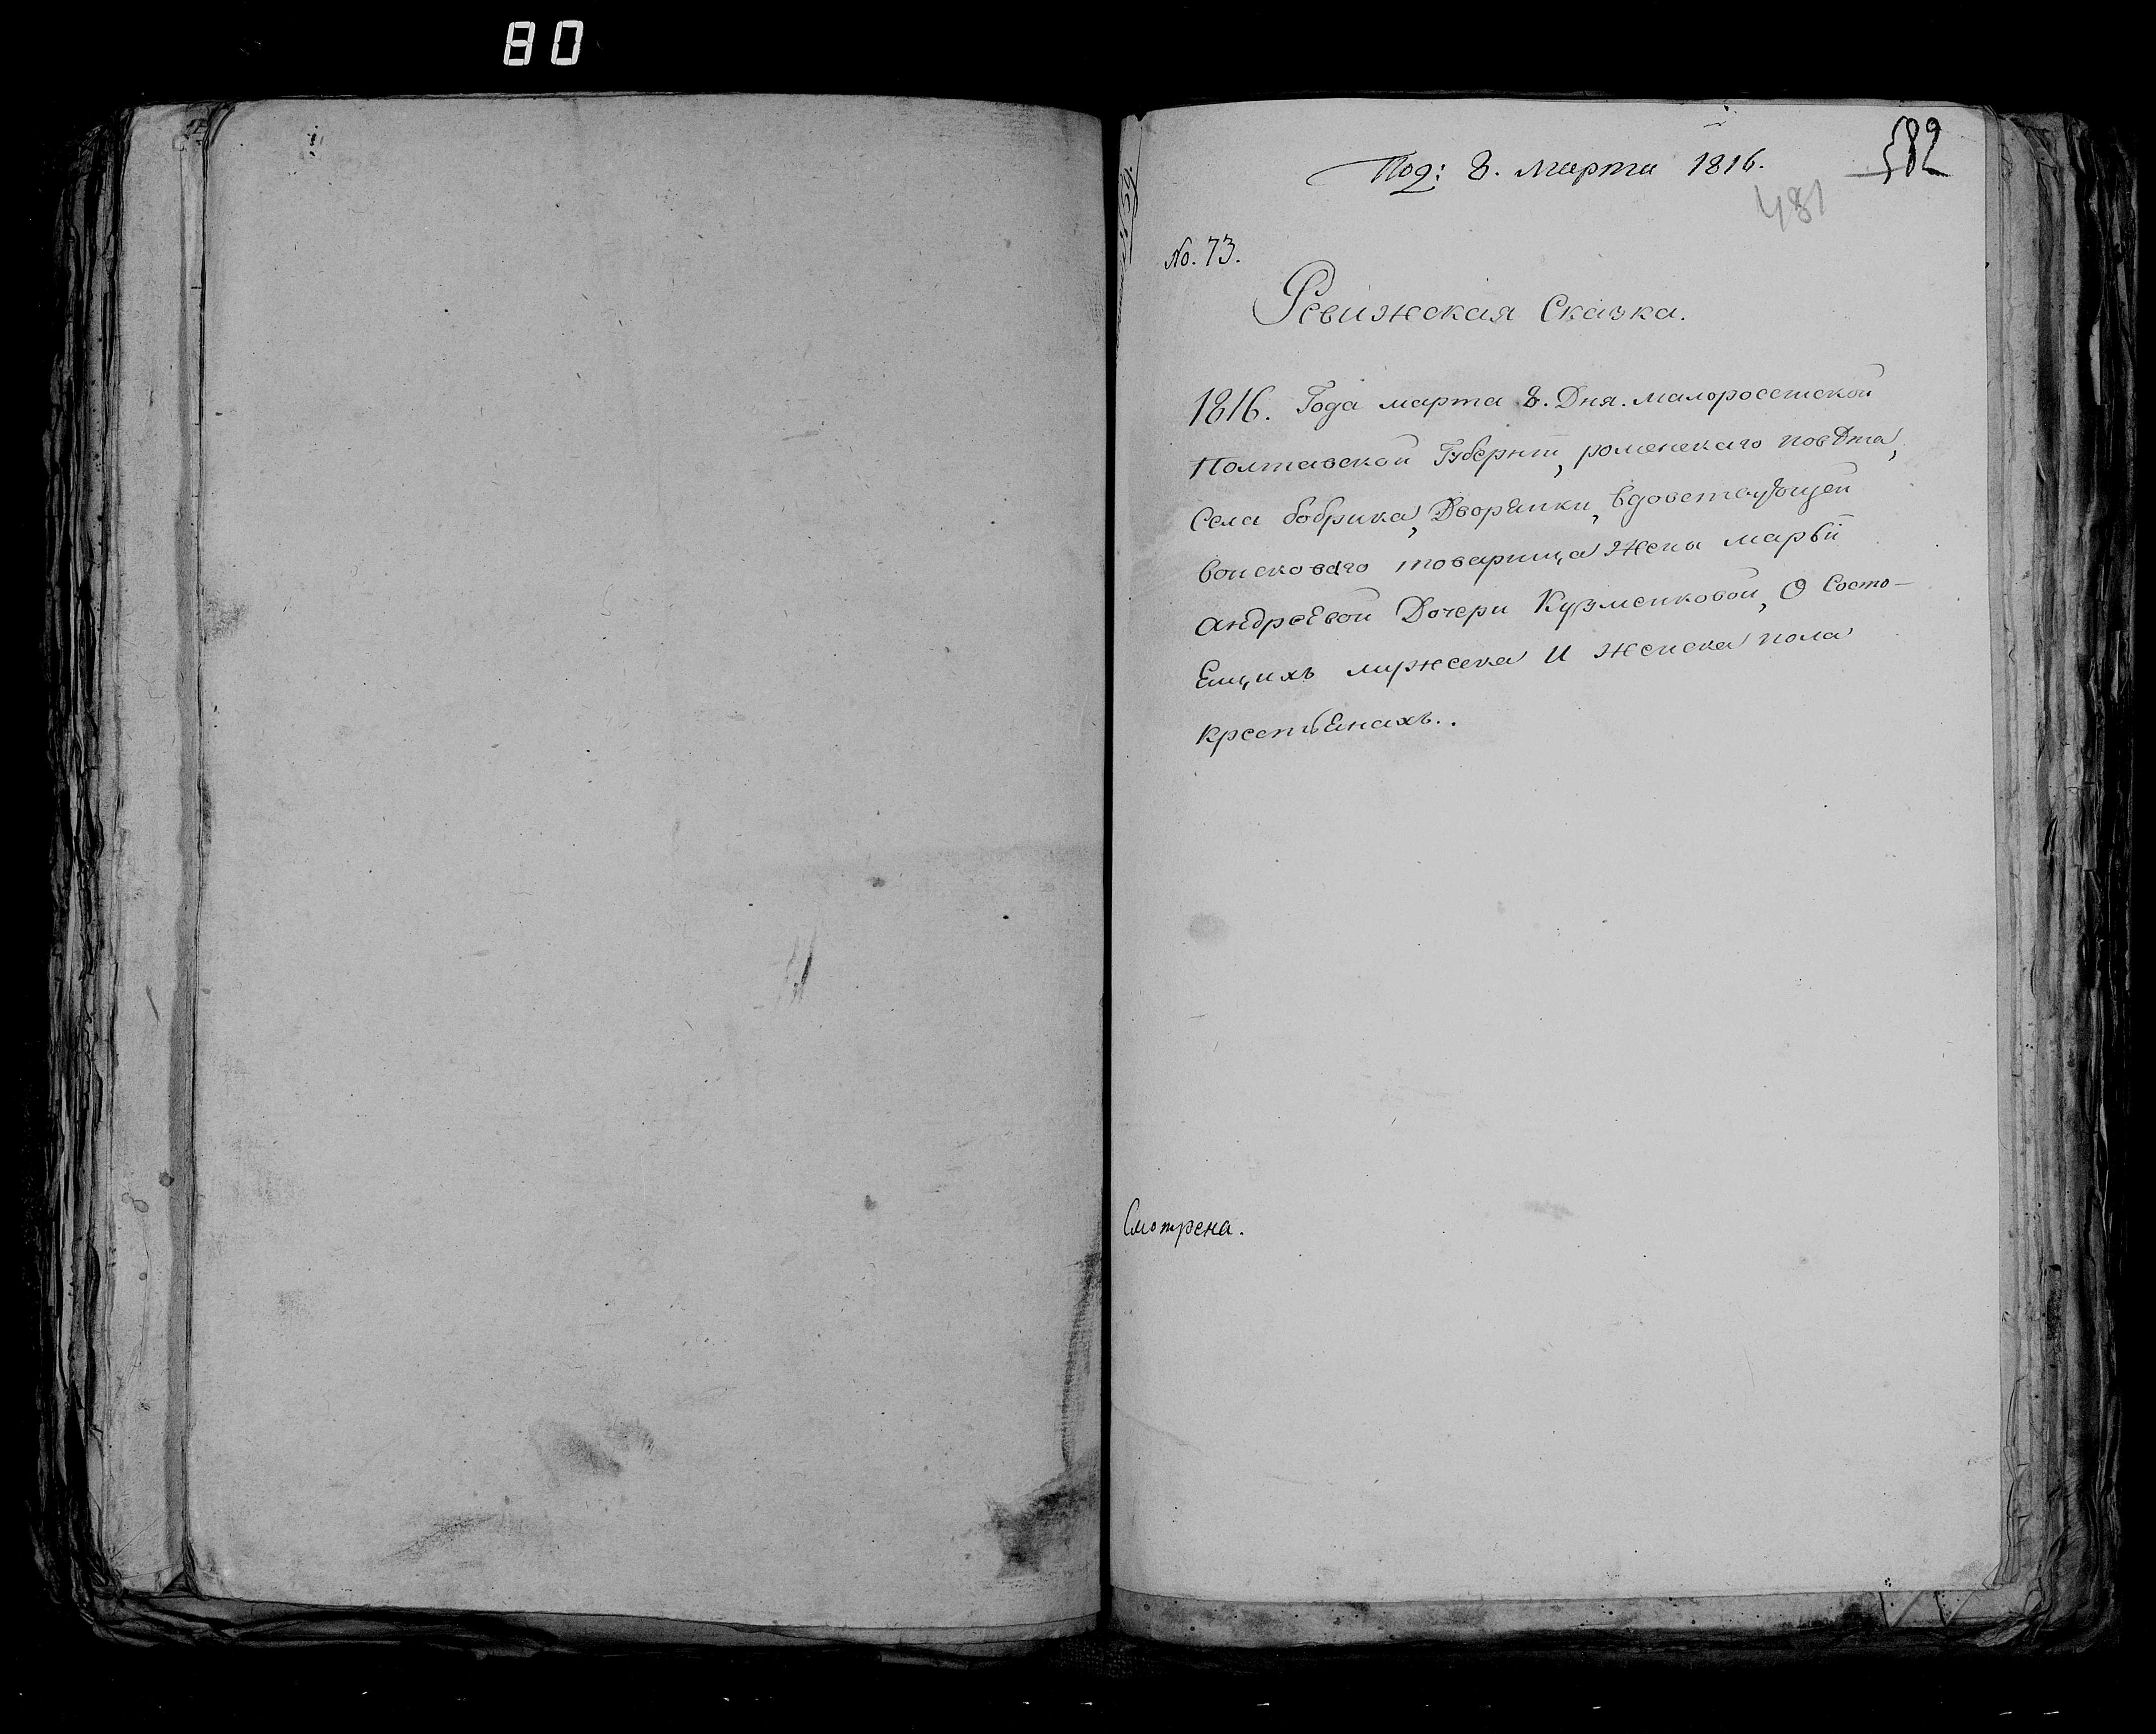 80
Под: 8. марта 1816.
582
481
No. 73.
Ревижская Сказка.
1816. Года марта 8. Дня. малоросетской
Полтавской Губернїи, роменскаго повѣта,
Села бобрика, Дворянки, вдовствующей
воисковаго товарища Жены марьи
андреевой Дочери Кузменковой, О Состо-
Ещихъ мужеска И женска пола
крестьЕнахъ..
Смотрена.